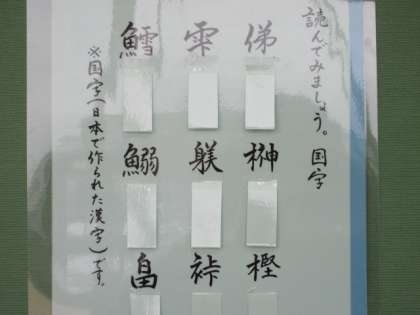 読んでみましょう。国字
俤
榊
樫
雫
躾
裃
鱈
鰯
畠
※国字(日本で作られた漢字)です。